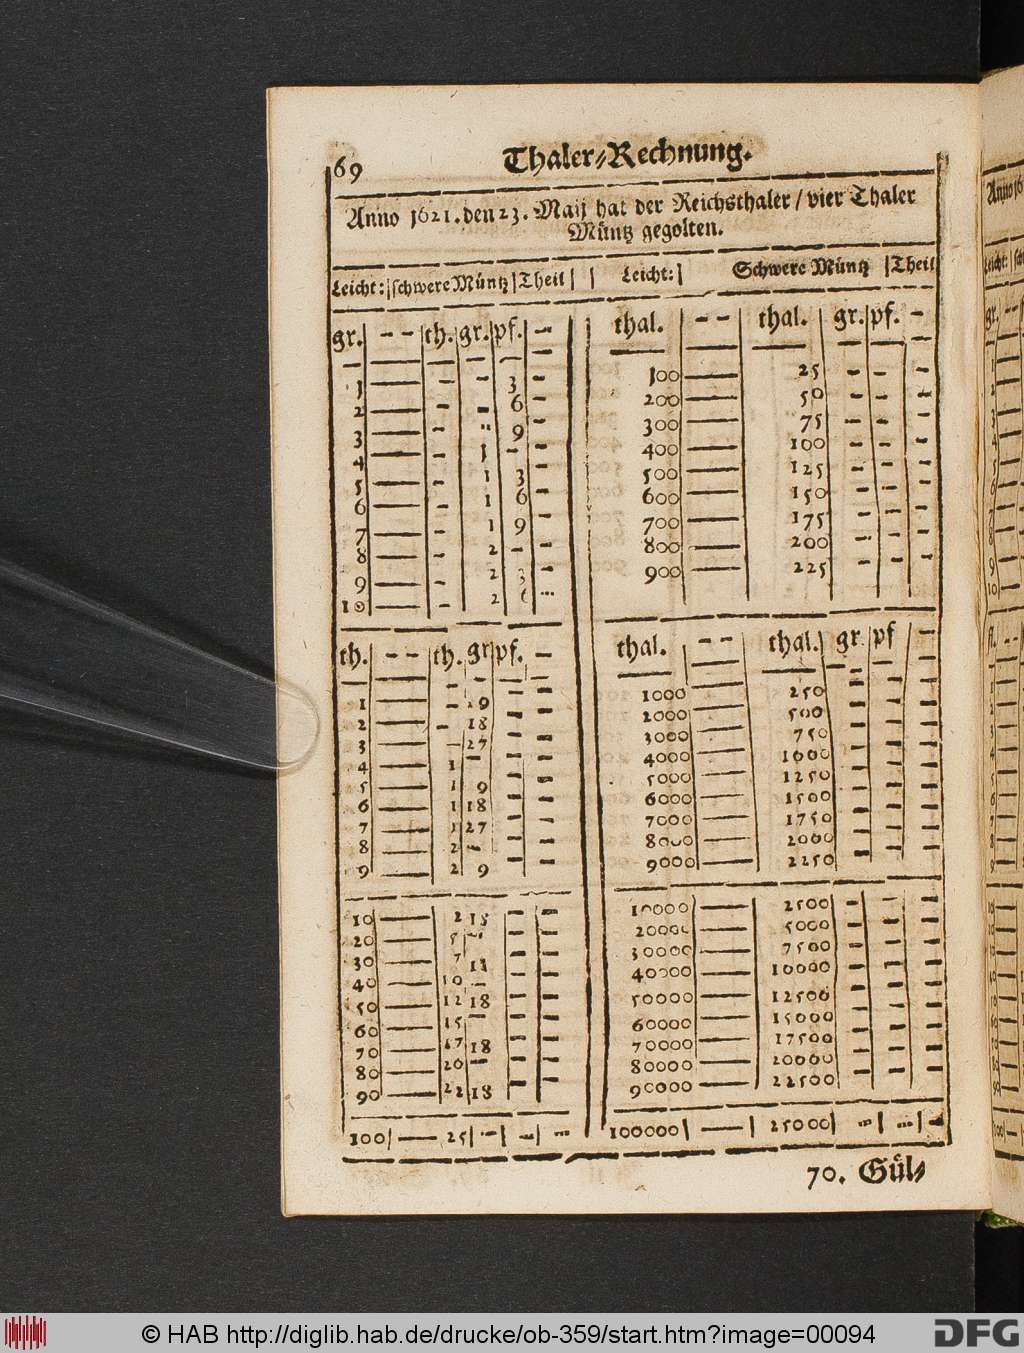 69 Thaler-Rechnung.
Anno 1621. den 23. Maij hat der Reichsthaler / vier Thaler
Müntz gegolten.
Leicht: | schwere Müntz | Theil |
gr. | - - | th. | gr. | pf. | -
1 — - - 3 -
2 — - - 6 -
3 — - " 9 -
4 — - 1 - -
5 — - 1 3 -
6 — - 1 6 -
7 — - 1 9 -
8 — - 2 - -
9 — - 2 3 -
10 — - 2 6 ...
th. | - - | th. | gr | pf. | -
1 — - 9 - -
2 — - 18 - -
3 — - 27 - -
4 — 1 - - -
5 — 1 9 - -
6 — 1 18 - -
7 — 1 27 - -
8 — 2 - - -
9 — 2 9 - -
10 — 2 - -
20 — 5 - - -
30 — 7 - -
40 — 10 - - -
50 — 12 18 - -
60 — 15 - - -
70 — 17 18 - -
80 — 20 - - -
90 — 22 18 - -
100 | — 25 | - | - | ...
Leicht: | Schwere Müntz | Theil
thal. | - - | thal. | gr. | pf. | -
100 — 25 - - -
200 — 50 - - -
300 — 75 - - -
400 — 100 - - -
500 — 125 - - -
600 — 150 - - -
700 — 175 - - -
800 — 200 - - -
900 — 225 - - -
thal. | - - | thal. | gr. | pf | -
1000 — 250 - - -
2000 — 500 - - -
3000 — 750 - - -
4000 — 1000 - - -
5000 — 1250 - - -
6000 — 1500 - - -
7000 — 1750 - - -
8000 — 2000 - - -
9000 — 2250 - - -
10000 — 2500 - - -
20000 — 5000 - - -
30000 — 7500 - - -
40000 — 10000 - - -
50000 — 12500 - - -
60000 — 15000 - - -
70000 — 17500 - - -
80000 — 20000 - - -
90000 — 22500 - - -
100000 | — | 25000 | ... | ... | -
70. Gül-
© HAB http://diglib.hab.de/drucke/ob-359/start.htm?image=00094
DFG